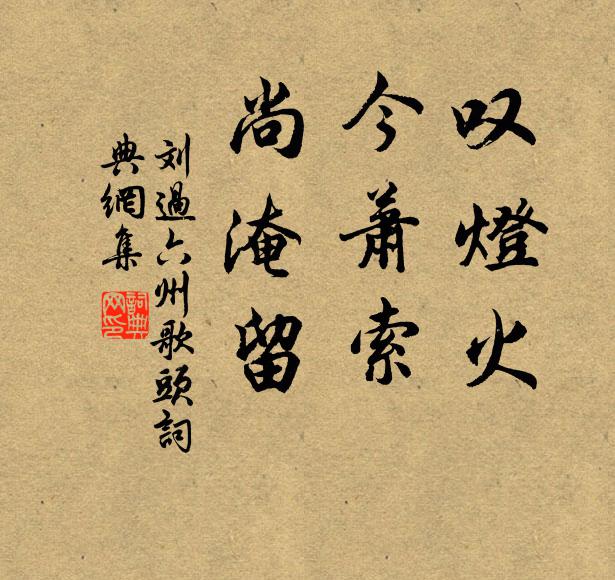 叹燈火
今蕭索
尚淹留
刘過六州歌頭詞
典網集
詞典
网印